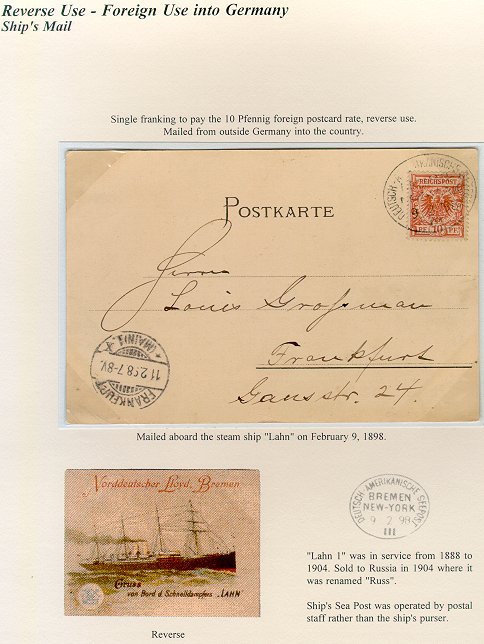 Reverse Use - Foreign Use into Germany
Ship's Mail
Single franking to pay the 10 Pfennig foreign postcard rate, reverse use.
Mailed from outside Germany into the country.
POSTKARTE
REICHSPOST
10
Herrn
Louis Grossman
Frankfurt
Gausstr. 24.
FRANKFURT (MAIN) 1.
11.2.98.7-8V.
Mailed aboard the steam ship "Lahn" on February 9, 1898.
Norddeutscher Lloyd, Bremen
Gruss
von Bord d. Schnelldampfers "LAHN"
Reverse
DEUTSCH AMERIKANISCHE SEEPOST
BREMEN
NEW-YORK
9 2 98
III
"Lahn 1" was in service from 1888 to
1904. Sold to Russia in 1904 where it
was renamed "Russ".
Ship's Sea Post was operated by postal
staff rather than the ship's purser.